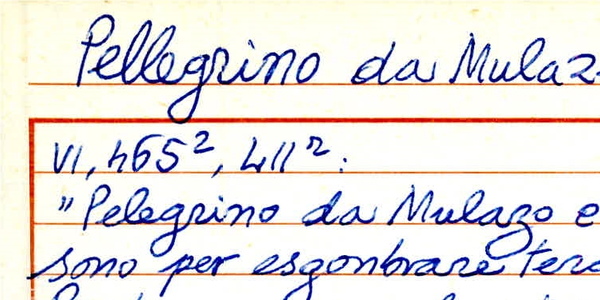 Pellegrino da Mulaz
VI, 465², 411²:
"Pelegrino da Mulazo e
sono per esgonbrare